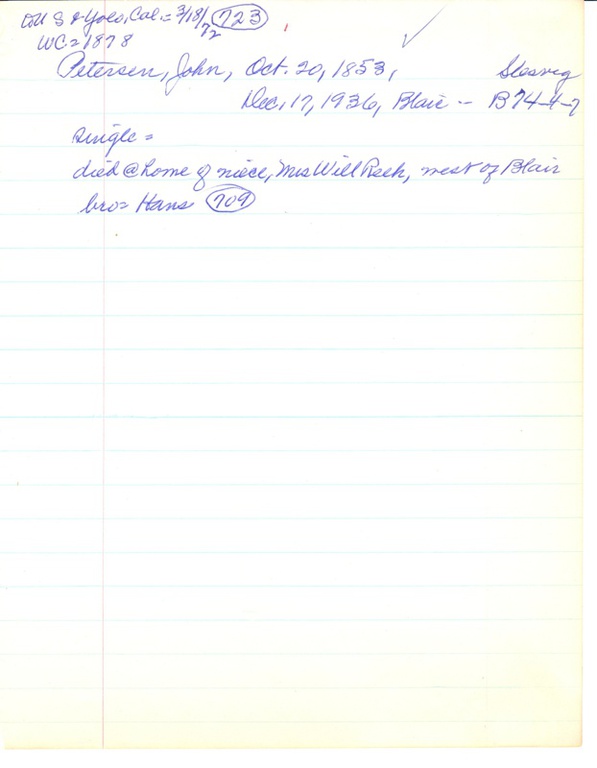 to U S & Yolo, Cal. = 3/18/72 (723)
WC = 1878
Petersen, John, Oct. 20, 1853, Slesvig
Dec. 17, 1936, Blair -- B74-4-7
single =
died @ home of niece, Mrs Will Rech, west of Blair
bro = Hans (709)